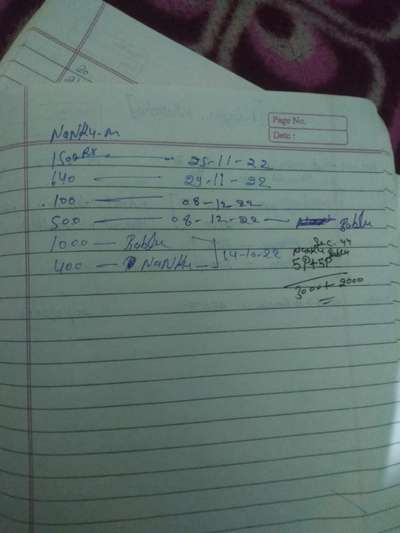 20
21
Page No.
Date :
Nanku.m
1500Rs — 25-11-22
640 — 29-11-22
.100 — 08-12-22
500 — 08-12-22 — Bablu
1000 — Bablu
400 — Nanku — 14-10-22
5P+5P
3000+2000